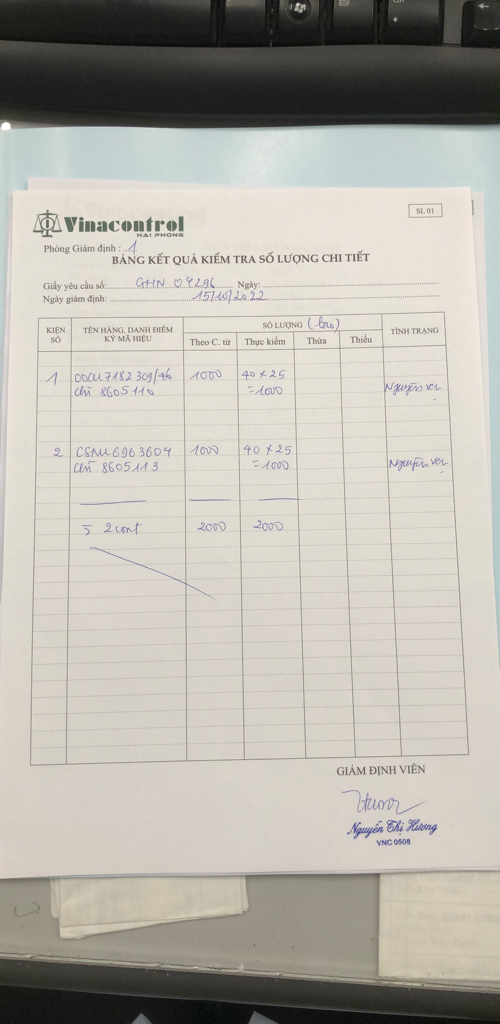 SL 01
Vinacontrol
HAI PHONG
Phòng Giám định : 1
BẢNG KẾT QUẢ KIỂM TRA SỐ LƯỢNG CHI TIẾT
Giấy yêu cầu số: GHN 04296 Ngày:
Ngày giám định: 15/10/2022
KIỆN SỐ TÊN HÀNG, DANH ĐIỂM KÝ MÃ HIỆU SỐ LƯỢNG (bao) TÌNH TRẠNG
Theo C. từ Thực kiểm Thừa Thiếu
1 OOCU 7182 309 1000 40 x 25
chì 8605116 =1000 Nguyên vẹn
2 CSNU 6963604 1000 40 x 25
chì 8605113 =1000 Nguyên vẹn
2 cont 2000 2000
GIÁM ĐỊNH VIÊN
Nguyễn Thị Hương
VNC 0508